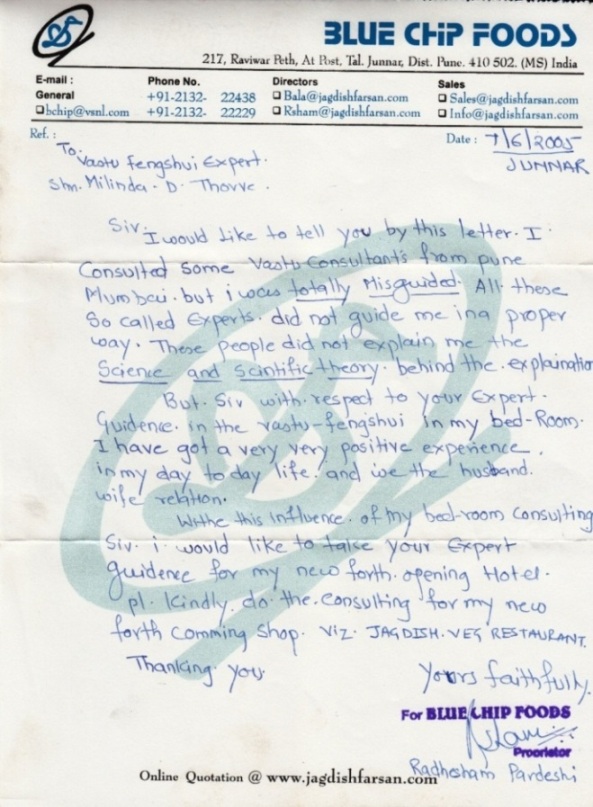 BLUE CHIP FOODS
217, Raviwar Peth, At Post, Tal. Junnar, Dist. Pune. 410 502. (MS) India
E-mail : Phone No. Directors Sales
General +91-2132- 22438 Bala@jagdishfarsan.com Sales@jagdishfarsan.com
bchip@vsnl.com +91-2132- 22229 Rsham@jagdishfarsan.com Info@jagdishfarsan.com
Ref. : Date : 7/6/2005
To, JUNNAR
Vastu Fengshui Expert.
Shri. Milinda. D. Thorve.
Sir. I would like to tell you by this letter. I
Consulted Some Vastu Consultants from pune
Mumbai. but i was totally Misguided. All these
So called Experts. did not guide me in a proper
way. These people did not explain me the
Science and scintific theory. behind the explaination
But. Sir with respect to your Expert.
Guidence. in the vastu-fengshui in my bed-Room.
I have got a very very positive experience.
in my day to day life. and in the husband.
wife relation.
Withe this influence. of my bed-room consulting
Sir. i would like to take your Expert
guidence for my new forth. opening Hotel.
pl. Kindly. do. the. Consulting for my new
forth Comming shop. viz. JAGDISH. VEG RESTAURANT.
Thanking you
Yours faithfully,
For BLUE CHIP FOODS
Proprietor
Radhesham Pardeshi
Online Quotation @ www.jagdishfarsan.com